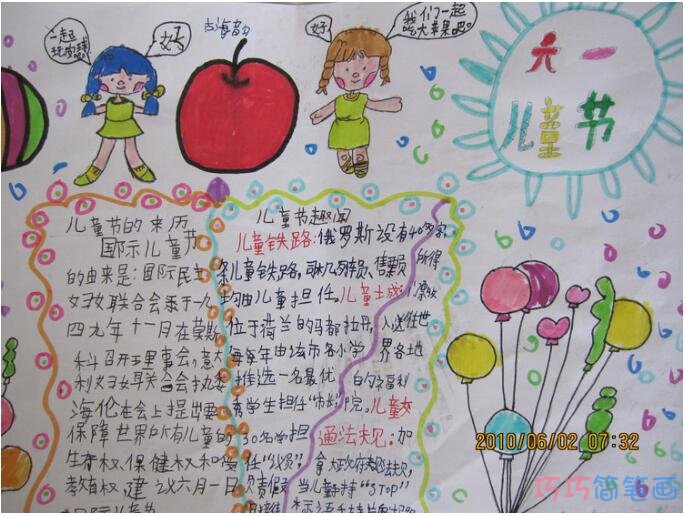 一起
玩皮球
好
好
我们一起
吃大苹果吧。
六一
儿童节
儿童节的来历
国际儿童节
的由来是:国际民主
妇女联合会于一九
四九年十一月在莫斯
科召开理事会,意大
利妇女联合会
海伦在会上提出要
保障世界所有儿童的
生存权、保健权和受
教育权,建议六月一日
儿童节趣闻
儿童铁路:俄罗斯设有40多条
条儿童铁路,司机、列车员、售票员
所得
均由儿童担任。儿童土城:
位于荷兰的马都拉丹,
入送往世
每年由该市各小学
界各地
推选一名最优
的福利
秀学生担任“市长”
院。儿童交
30名学担
通法规:加
任“议员”
拿大政府
当儿童持“STOP”
2010/06/02 07:32
巧巧简笔画